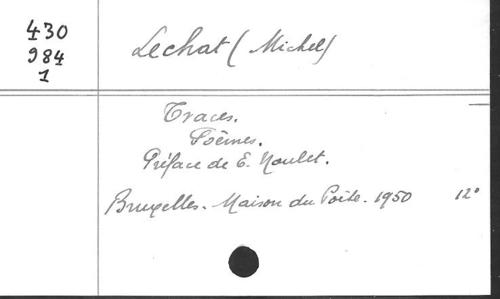 430
984
1
Lechat (Michel)
Traces.
Poèmes.
Préface de E. Noulet.
Bruxelles. Maison du Poète. 1950 12°